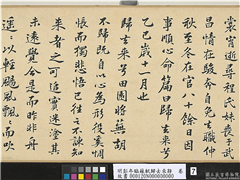 裳宵逝尋程氏妹喪于武
昌情在駿奔自免去職仲
秋至冬在官八十餘日因
事順心命篇曰歸去來兮
乙巳歲十一月也
歸去來兮田園將蕪胡
不歸既自以心為形役奚惆
悵而獨悲悟已往之不諫知
來者之可追實迷塗其
未遠覺今是而昨非舟
遙〻以輕颺風飄〻而吹
卷
7